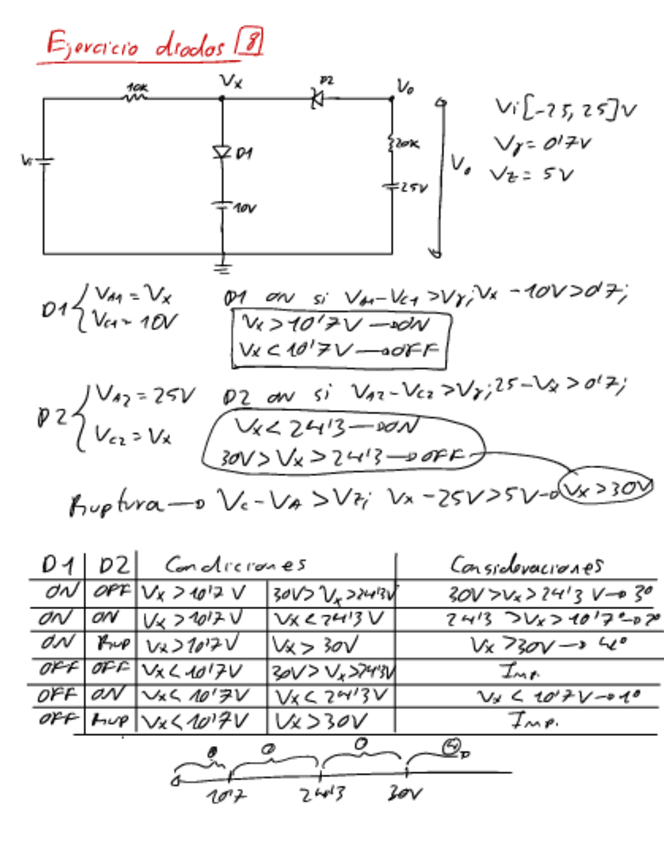 Ejercicio diodos 8
10K Vx D2 Vo
Vi D1 10V 20K 25V Vo
Vi[-25, 25]V
Vγ = 0'7V
Vz = 5V
D1 { VA1 = Vx D1 on si VA1-VC1 > Vγ; Vx - 10V > 0'7;
VC1 = 10V Vx > 10'7V → ON
Vx < 10'7V → OFF
D2 { VA2 = 25V D2 on si VA2-VC2 > Vγ; 25-Vx > 0'7;
VC2 = Vx Vx < 24'3 → ON
30V > Vx > 24'3 → OFF
Ruptura → VC - VA > Vz; Vx - 25V > 5V → Vx > 30V
D1 D2 Condiciones Consideraciones
ON OFF Vx > 10'7 V 30V > Vx > 24'3V 30V > Vx > 24'3 V → 3º
ON ON Vx > 10'7V Vx < 24'3 V 24'3 > Vx > 10'7 → 2º
ON Rup Vx > 10'7V Vx > 30V Vx > 30V → 4º
OFF OFF Vx < 10'7V 30V > Vx > 24'3V Imp.
OFF ON Vx < 10'7V Vx < 24'3V Vx < 10'7V → 1º
OFF Rup Vx < 10'7V Vx > 30V Imp.
4
10'7 24'3 30V